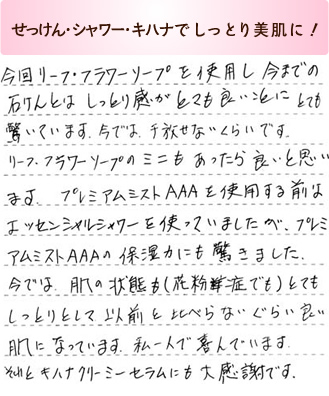 せっけん・シャワー・キハナで しっとり美肌に！
今回リーフ・フラワーソープを使用し 今までの
石けんとは しっとり感が とても良いことに とても
驚いています. 今では 手放せないくらいです.
リーフ・フラワーソープの ミニも あったら 良いと思い
ます プレミアムミストAAAを使用する前は
エッセンシャルシャワーを使っていましたが、プレミ
アムミストAAAの 保湿力にも 驚きました.
今では. 肌の状態も(花粉症でも)とても
しっとりとして 以前と 比べらないぐらい良い
肌に なっています. 私一人で 喜んでいます.
それと キハナクリーミーセラムにも 大感謝です.